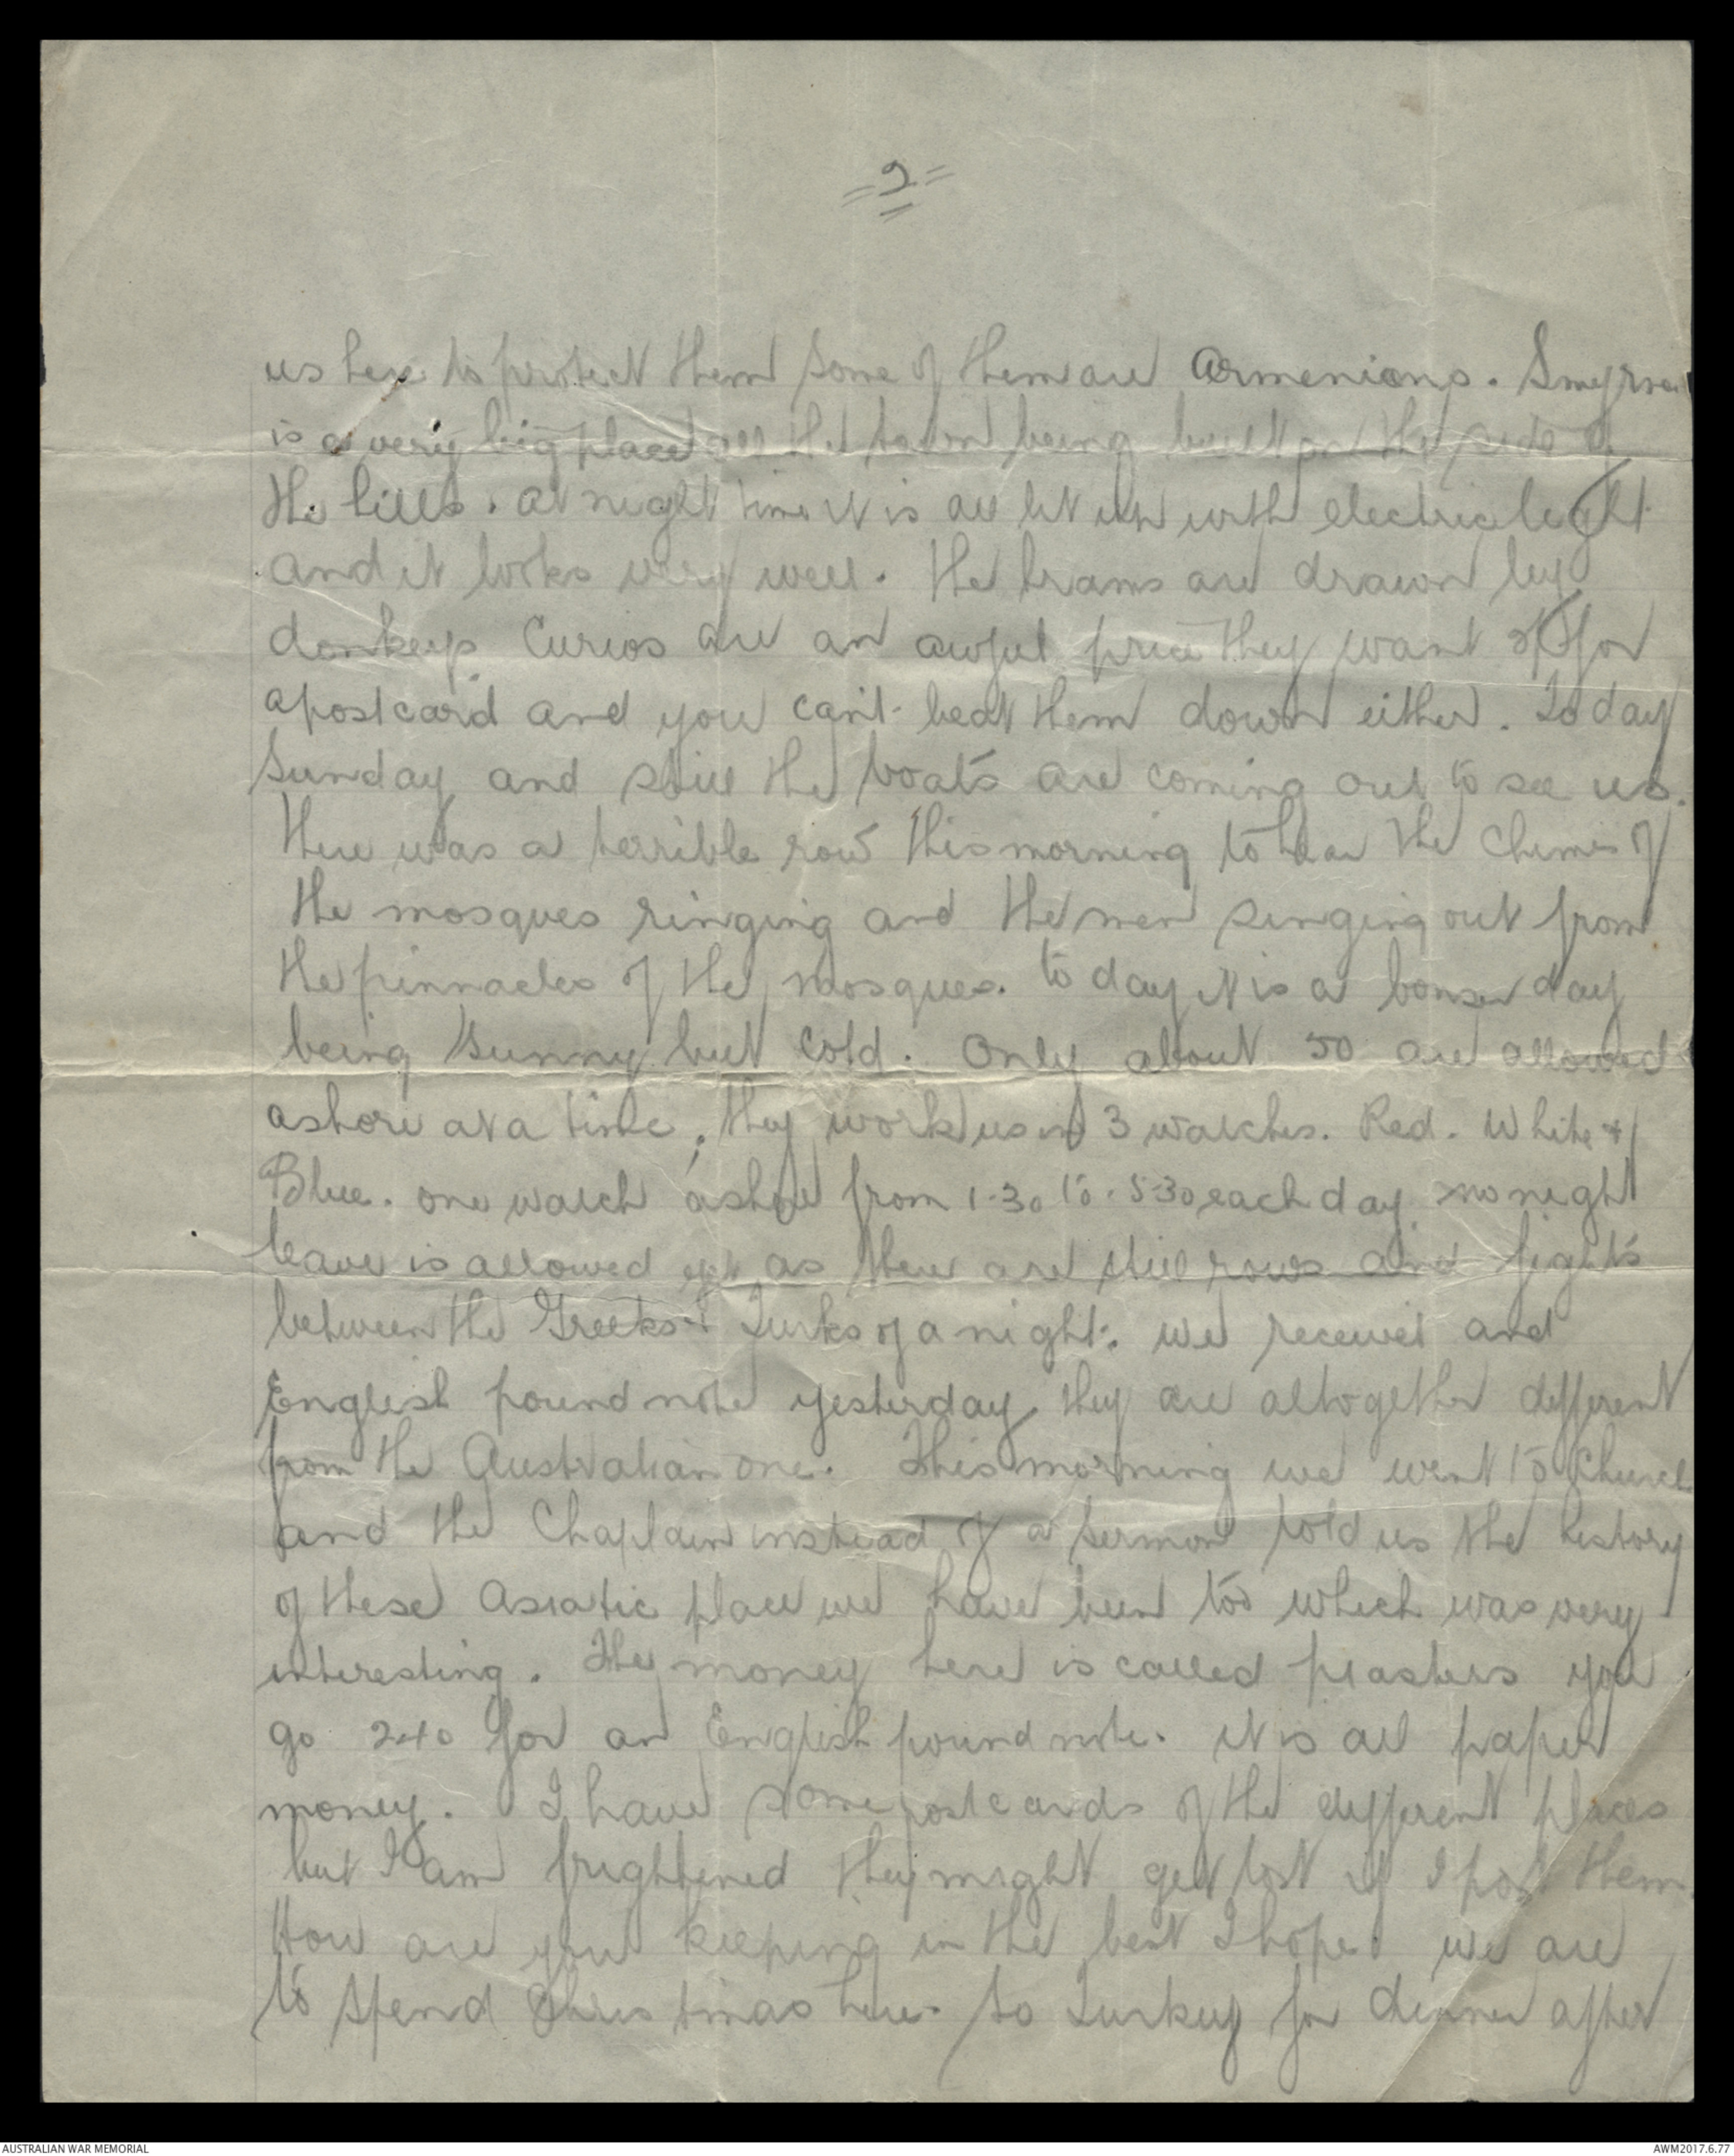 =2=
us here to protect them some of them are Armenians. Smyrna
is a very big place all the town being built on the side of
the hills. At night time it is all lit up with electric light
and it looks very well. The trams are drawn by
donkeys. Curios are an awful price they want for
a postcard and you can't beat them down either. To day
Sunday and still the boats are coming out to see us.
There was a terrible row this morning to hear the chimes of
the mosques ringing and the men singing out from
the pinnacles of the mosques. to day it is a bonser day
being sunny but cold. Only about 50 are allowed
ashore at a time, they work us in 3 watches. Red. White &
Blue. one watch ashore from 1-30 to 5-30 each day no night
leave is allowed as there are still rows and fights
between the Greeks & Turks of a night. we receive and
English pound note yesterday they are altogether different
from the Australian one. This morning we went to Church
and the Chaplain instead of a sermon told us the history
of these Asiatic place we have been too which was very
interesting. They money here is called piasters you
go 240 for an English pound note. it is all paper
money. I have some postcards of the different places
but I am frightened they might get lost if I post them.
How are you keeping in the best I hope. we are
to spend Christmas here. so Turkey for dinner after
AUSTRALIAN WAR MEMORIAL
AWM2017.6.77